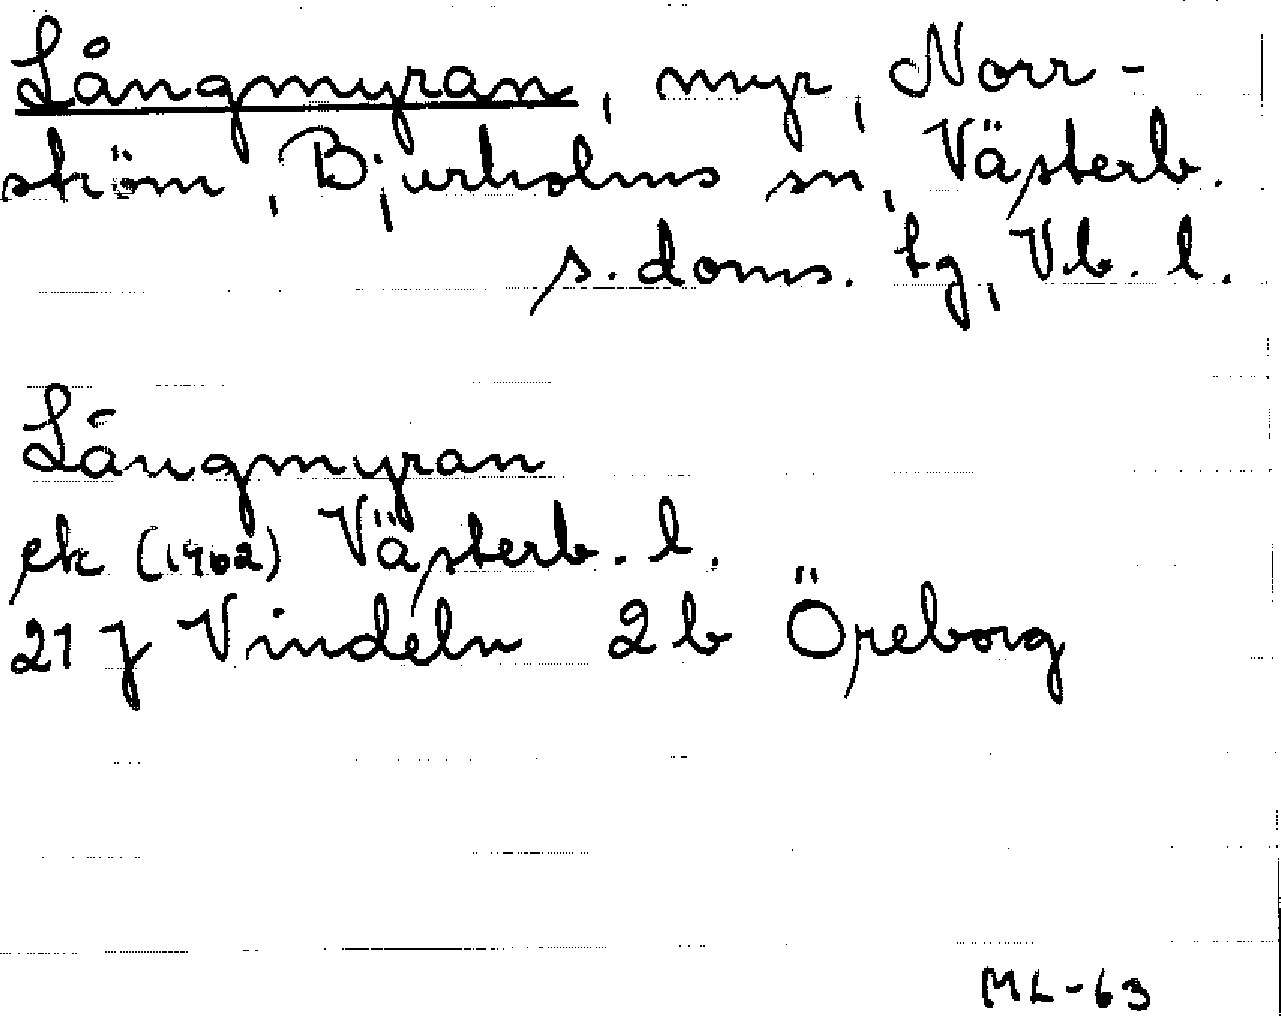 Långmyran, myr, Norr-
ström, Bjurholms sn, Västerb.
s. doms. tg, Vb. l.
Långmyran
ek (1962) Västerb. l.
21 J Vindeln 2 b Öreborg
ML-63